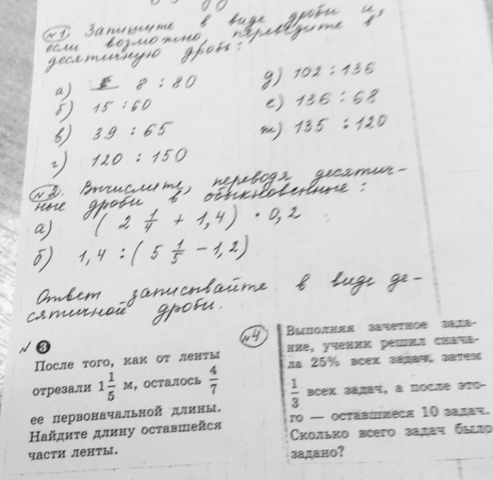 №1 Запишите в виде дроби и,
если возможно, переведите в
десятичную дробь:
а) 8 : 80
б) 15 : 60
в) 39 : 65
г) 120 : 150
д) 102 : 136
е) 136 : 68
ж) 135 : 120
№2. Вычислите, переводя десятич-
ные дроби в обыкновенные:
а) (2 1/4 + 1,4) · 0,2
б) 1,4 : (5 1/5 − 1,2)
Ответ записывайте в виде де-
сятичной дроби.
№ 3
После того, как от ленты
отрезали 1 1/5 м, осталось 4/7
ее первоначальной длины.
Найдите длину оставшейся
части ленты.
№4
Выполняя зачетное зада-
ние, ученик решил снача-
ла 25% всех задач, затем
1/3 всех задач, а после это-
го — оставшиеся 10 задач.
Сколько всего задач было
задано?